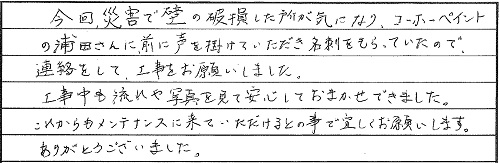 今回災害で壁の破損した所が気になり、コーホーペイント
の浦田さんに前に声を掛けていただき名刺をもらっていたので、
連絡をして、工事をお願いしました。
工事中も流れや写真を見て安心しておまかせできました。
これからもメンテナンスに来ていただけるとの事で宜しくお願いします。
ありがとうございました。